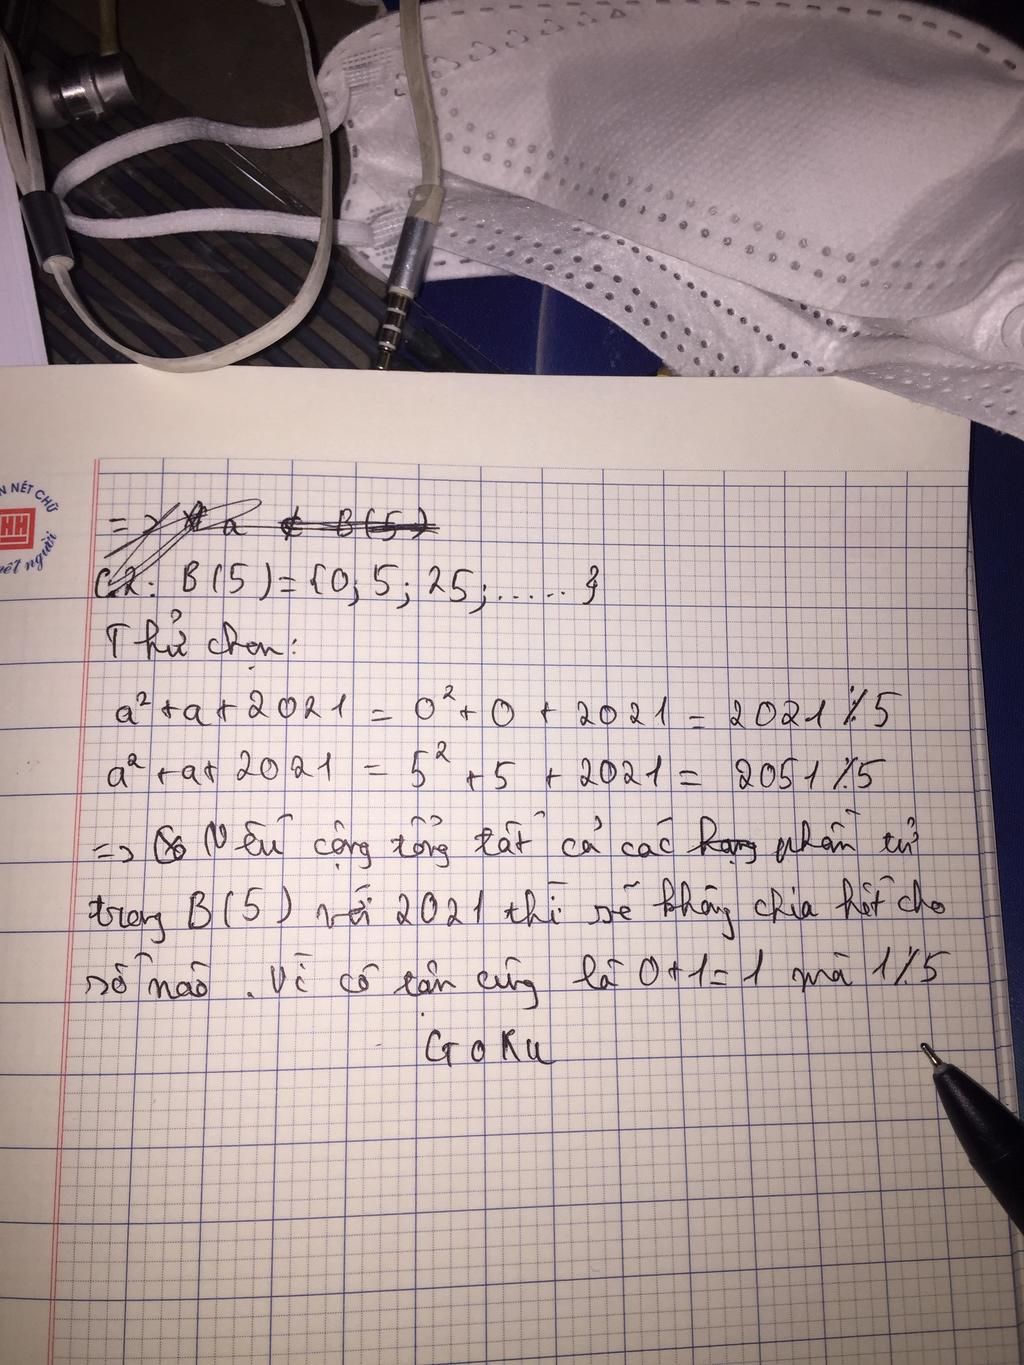 N NÉT CHỮ
HH
nết người
=> a ∉ B(5)
C2: B(5) = {0; 5; 25; ..... }
Thử chọn:
a² + a + 2021 = 0² + 0 + 2021 = 2021 ⋮̸ 5
a² + a + 2021 = 5² + 5 + 2021 = 2051 ⋮̸ 5
=> Nếu cộng tổng tất cả các phần tử
trong B(5) với 2021 thì sẽ không chia hết cho
số nào. Vì có tận cùng là 0+1=1 mà 1 ⋮̸ 5
GoKu